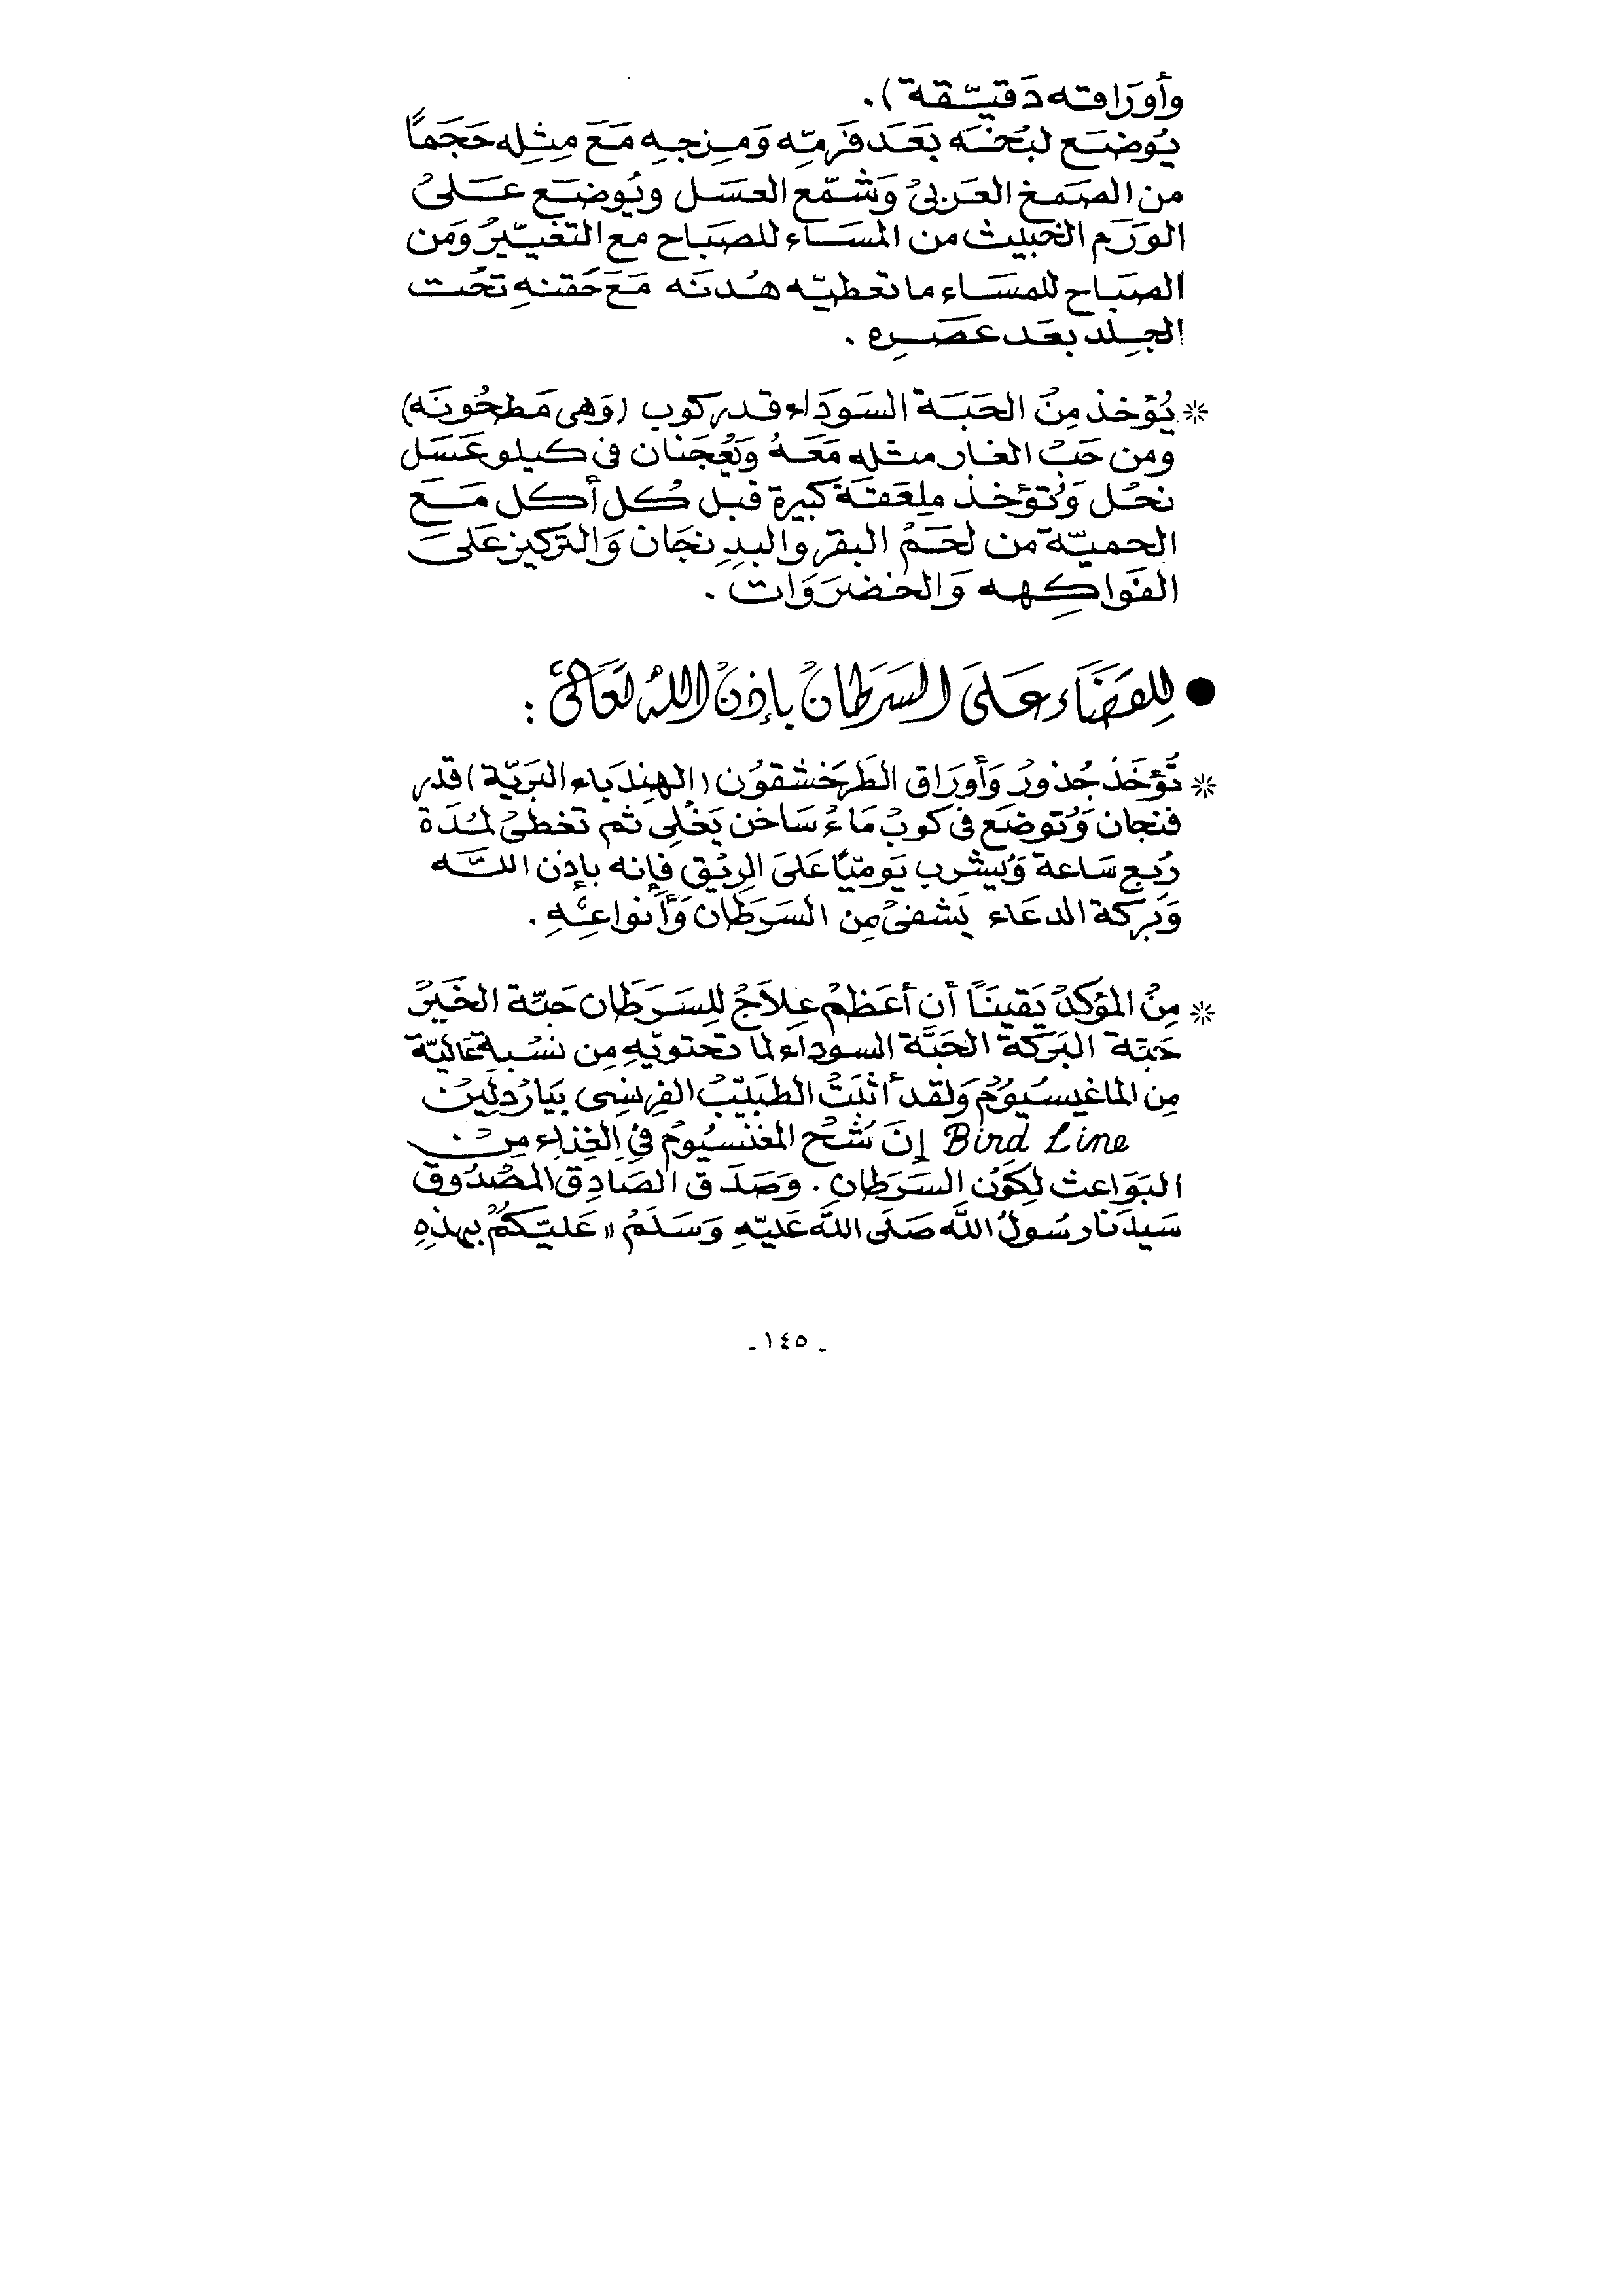 وأورَاقه دَقيّقة).
يُوضَع لبُخَه بَعَد فَرمّه وَمِزجِهِ مَعَ مِثِله حَجَماً
من الصَمَغ العَربىْ وَشَمّع العسَل ويُوضَع عَلىْ
الوَرَم الخَبيث من المسَاء للصبَاح مع التغيّيرُ وَمَن
الصبَاح للمسَاء ما تعطيّه هُدنَه مَعَ حُقنهِ تحُت
الجلد بعَد عَصَره .
* يُؤخذ مِنْ الحَبَة السَودَاء قدر كوب (وَهى مَطحُونَه)
ومن حَبْ الغار مثله مَعَهُ وَيُعجَنان فى كيلو عَسَل
نحُل وَتُؤخذ ملِعَقَة كبيرة قبل كُل أكل مَعَ
الحميّة من لحَمْ البقر والبدِنجَان وَالتَركيز عَلىَ
الفَواكِهه وَالخضرَوَات .
● لِلقضَاء عَلىَ السَرَطانْ بإذنْ اللهُ تَعَالىْ :
* تُؤخَذْ جُذورْ وَأورَاق الطَرخَشقوُن (الهِندبَاء البَريّة) قدر
فنجان وَتُوضَع فى كوبْ مَاءْ سَاخن يَغلِى ثم تغطىْ لمُدَة
رُبع سَاعة وَيُشرب يَوميّاً عَلىَ الرِيْق فإنه بإذن اللَّه
وَبَركة الدعَاء يَشفىْ مِن السَرَطان وَأنواعِهِ .
* مِنْ المؤكدْ يَقينَاً أن أعَظمْ عِلاَجْ لِلسَرَطان حَبّة الخَيرْ
حَبّة البَرَكة الحَبَّة السوداء لما تحتويّهِ مِن نسْبةِ عَاليّة
مِن الماغيسيُومْ وَلقد أثبَتْ الطبَيّبْ الفرِنسِى بيَارْدلِينْ
Bird Line إنَ شُحْ المغنسيُومْ فِى الغِذاء مِنْ
البَوَاعث لِكَوُن السَرَطانِ . وَصَدَق الصَادِق المصْدُوقْ
سَيدَنا رسُولْ اللَّه صَلَى اللَّه عَليّهِ وَسَلَمْ « عَليّكُمْ بهذِهِ
ـ ١٤٥ ـ